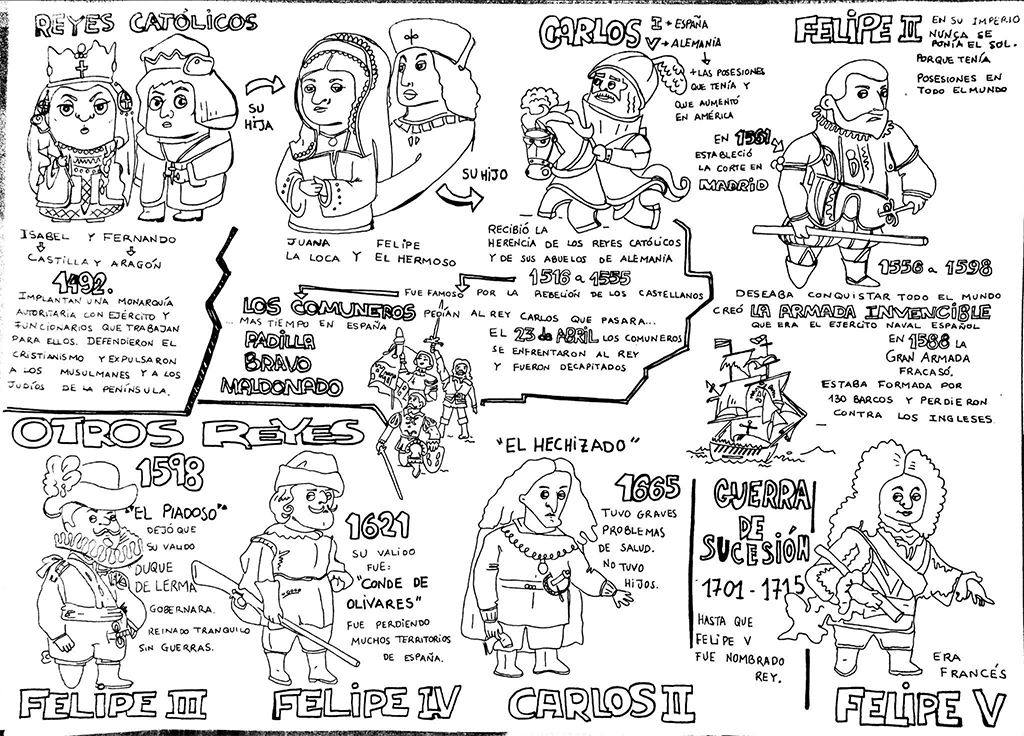 REYES CATÓLICOS
SU
HIJA
ISABEL Y FERNANDO
CASTILLA Y ARAGÓN
1492.
IMPLANTAN UNA MONARQUÍA
AUTORITARIA CON EJÉRCITO Y
FUNCIONARIOS QUE TRABAJAN
PARA ELLOS. DEFENDIERON EL
CRISTIANISMO Y EXPULSARON
A LOS MUSULMANES Y A LOS
JUDÍOS DE LA PENÍNSULA.
JUANA Y FELIPE
LA LOCA EL HERMOSO
SU HIJO
CARLOS I → ESPAÑA
V → ALEMANIA
+ LAS POSESIONES
QUE TENÍA Y
QUE AUMENTÓ
EN AMÉRICA
RECIBIÓ LA
HERENCIA DE LOS REYES CATÓLICOS
Y DE SUS ABUELOS DE ALEMANIA
1516 a 1555
FUE FAMOSO POR LA REBELIÓN DE LOS CASTELLANOS
LOS COMUNEROS PEDÍAN AL REY CARLOS QUE PASARA...
...MAS TIEMPO EN ESPAÑA
PADILLA
BRAVO
MALDONADO
EL 23 de ABRIL LOS COMUNEROS
SE ENFRENTARON AL REY
Y FUERON DECAPITADOS
FELIPE II
EN SU IMPERIO
NUNCA SE
PONIA EL SOL.
PORQUE TENÍA
POSESIONES EN
TODO EL MUNDO
EN 1561
ESTABLECIÓ
LA CORTE EN
MADRID
1556 a 1598
DESEABA CONQUISTAR TODO EL MUNDO
CREÓ LA ARMADA INVENCIBLE
QUE ERA EL EJERCITO NAVAL ESPAÑOL
EN 1588 LA
GRAN ARMADA
FRACASÓ.
ESTABA FORMADA POR
130 BARCOS Y PERDIERON
CONTRA LOS INGLESES
OTROS REYES
1598
"EL PIADOSO"
DEJÓ QUE
SU VALIDO
DUQUE
DE LERMA
GOBERNARA.
REINADO TRANQUILO
SIN GUERRAS.
FELIPE III
1621
SU VALIDO
FUE:
"CONDE DE
OLIVARES"
FUE PERDIENDO
MUCHOS TERRITORIOS
DE ESPAÑA.
FELIPE IV
"EL HECHIZADO"
1665
TUVO GRAVES
PROBLEMAS
DE SALUD.
NO TUVO
HIJOS.
CARLOS II
GUERRA
DE
SUCESIÓN
1701 - 1715
HASTA QUE
FELIPE V
FUE NOMBRADO
REY.
ERA
FRANCÉS
FELIPE V